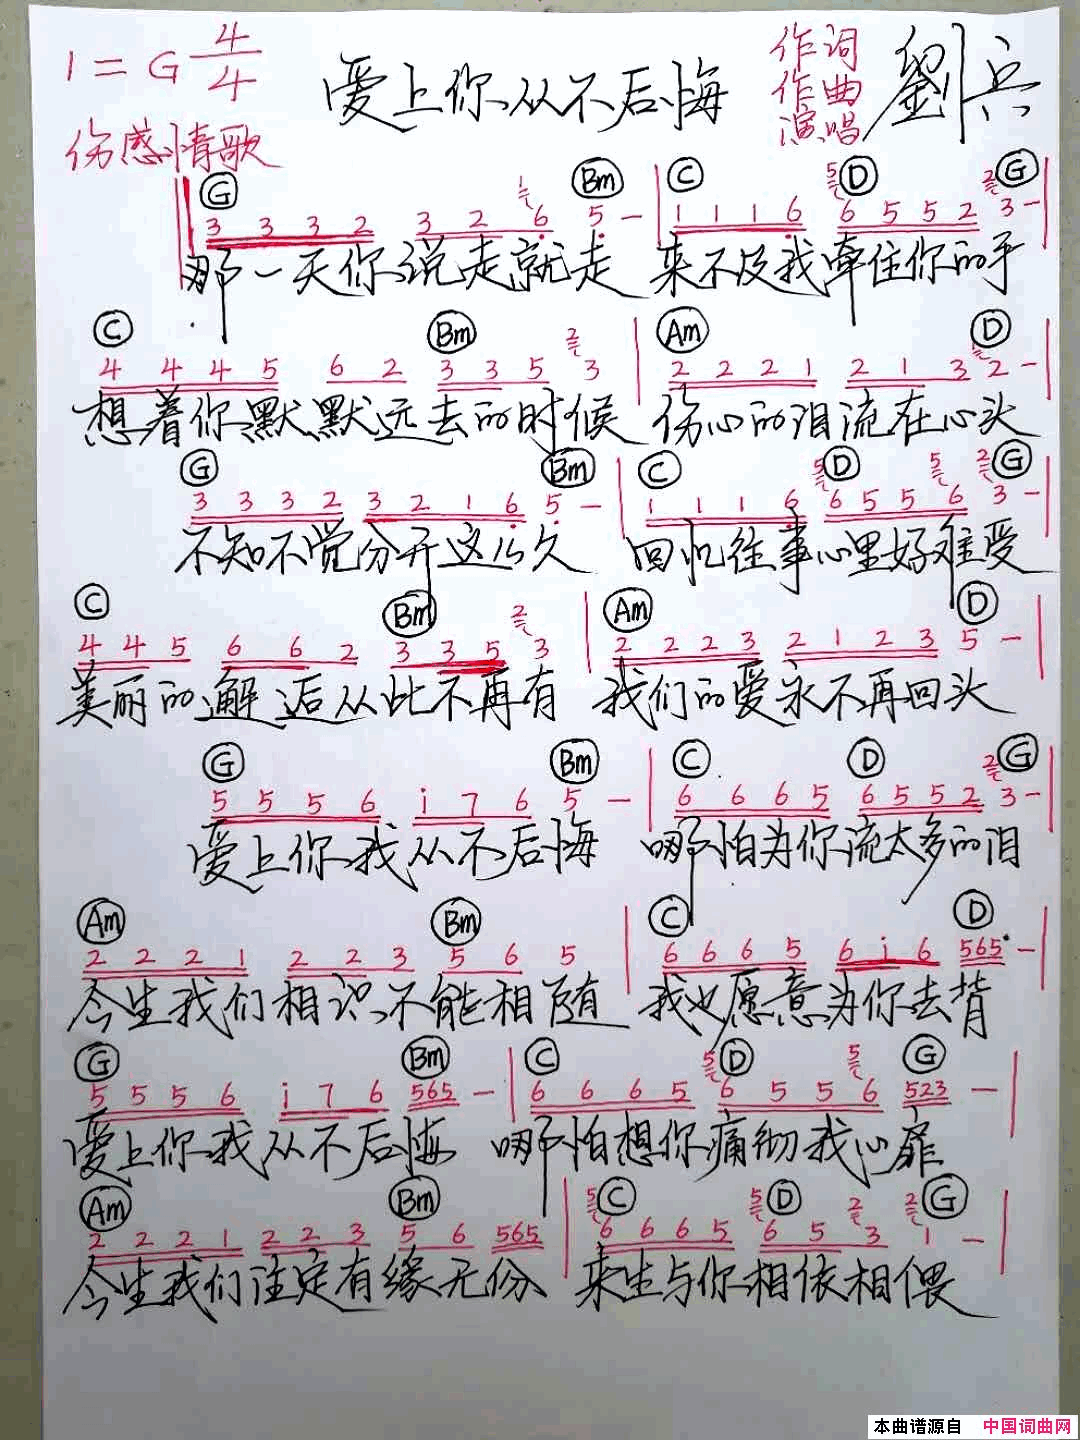 1=G 4/4
爱上你从不后悔
作词
作曲
演唱
劉兵
伤感情歌
G Bm C D G
3 3 3 2 3 2 1 6 5 - 1 1 1 6 5 6 5 5 2 2 3 -
那一天你说走就走 来不及我牵住你的手
C Bm Am D
4 4 4 5 6 2 3 3 5 2 3 2 2 2 1 2 1 3 1 2 -
想着你默默远去的时候 伤心的泪流在心头
G Bm C D G
3 3 3 2 3 2 1 6 5 - 1 1 1 6 5 6 5 5 5 6 2 3 -
不知不觉分开这么久 回忆往事心里好难受
C Bm Am D
4 4 5 6 6 2 3 3 5 2 3 2 2 2 3 2 1 2 3 5 -
美丽的邂逅从此不再有 我们的爱永不再回头
G Bm C D G
5 5 5 6 i 7 6 5 - 6 6 6 5 6 5 5 2 2 3 -
爱上你我从不后悔 哪怕为你流太多的泪
Am Bm C D
2 2 2 1 2 2 3 5 6 5 6 6 6 5 6 i 6 565 -
今生我们相识不能相随 我也愿意为你去背
G Bm C D G
5 5 5 6 i 7 6 565 - 6 6 6 5 5 6 5 5 5 6 523 -
爱上你我从不后悔 哪怕想你痛彻我心扉
Am Bm C D G
2 2 2 1 2 2 3 5 6 565 5 6 6 6 5 5 6 5 2 3 2 1 -
今生我们注定有缘无份 来生与你相依相偎
本曲谱源自 中国词曲网